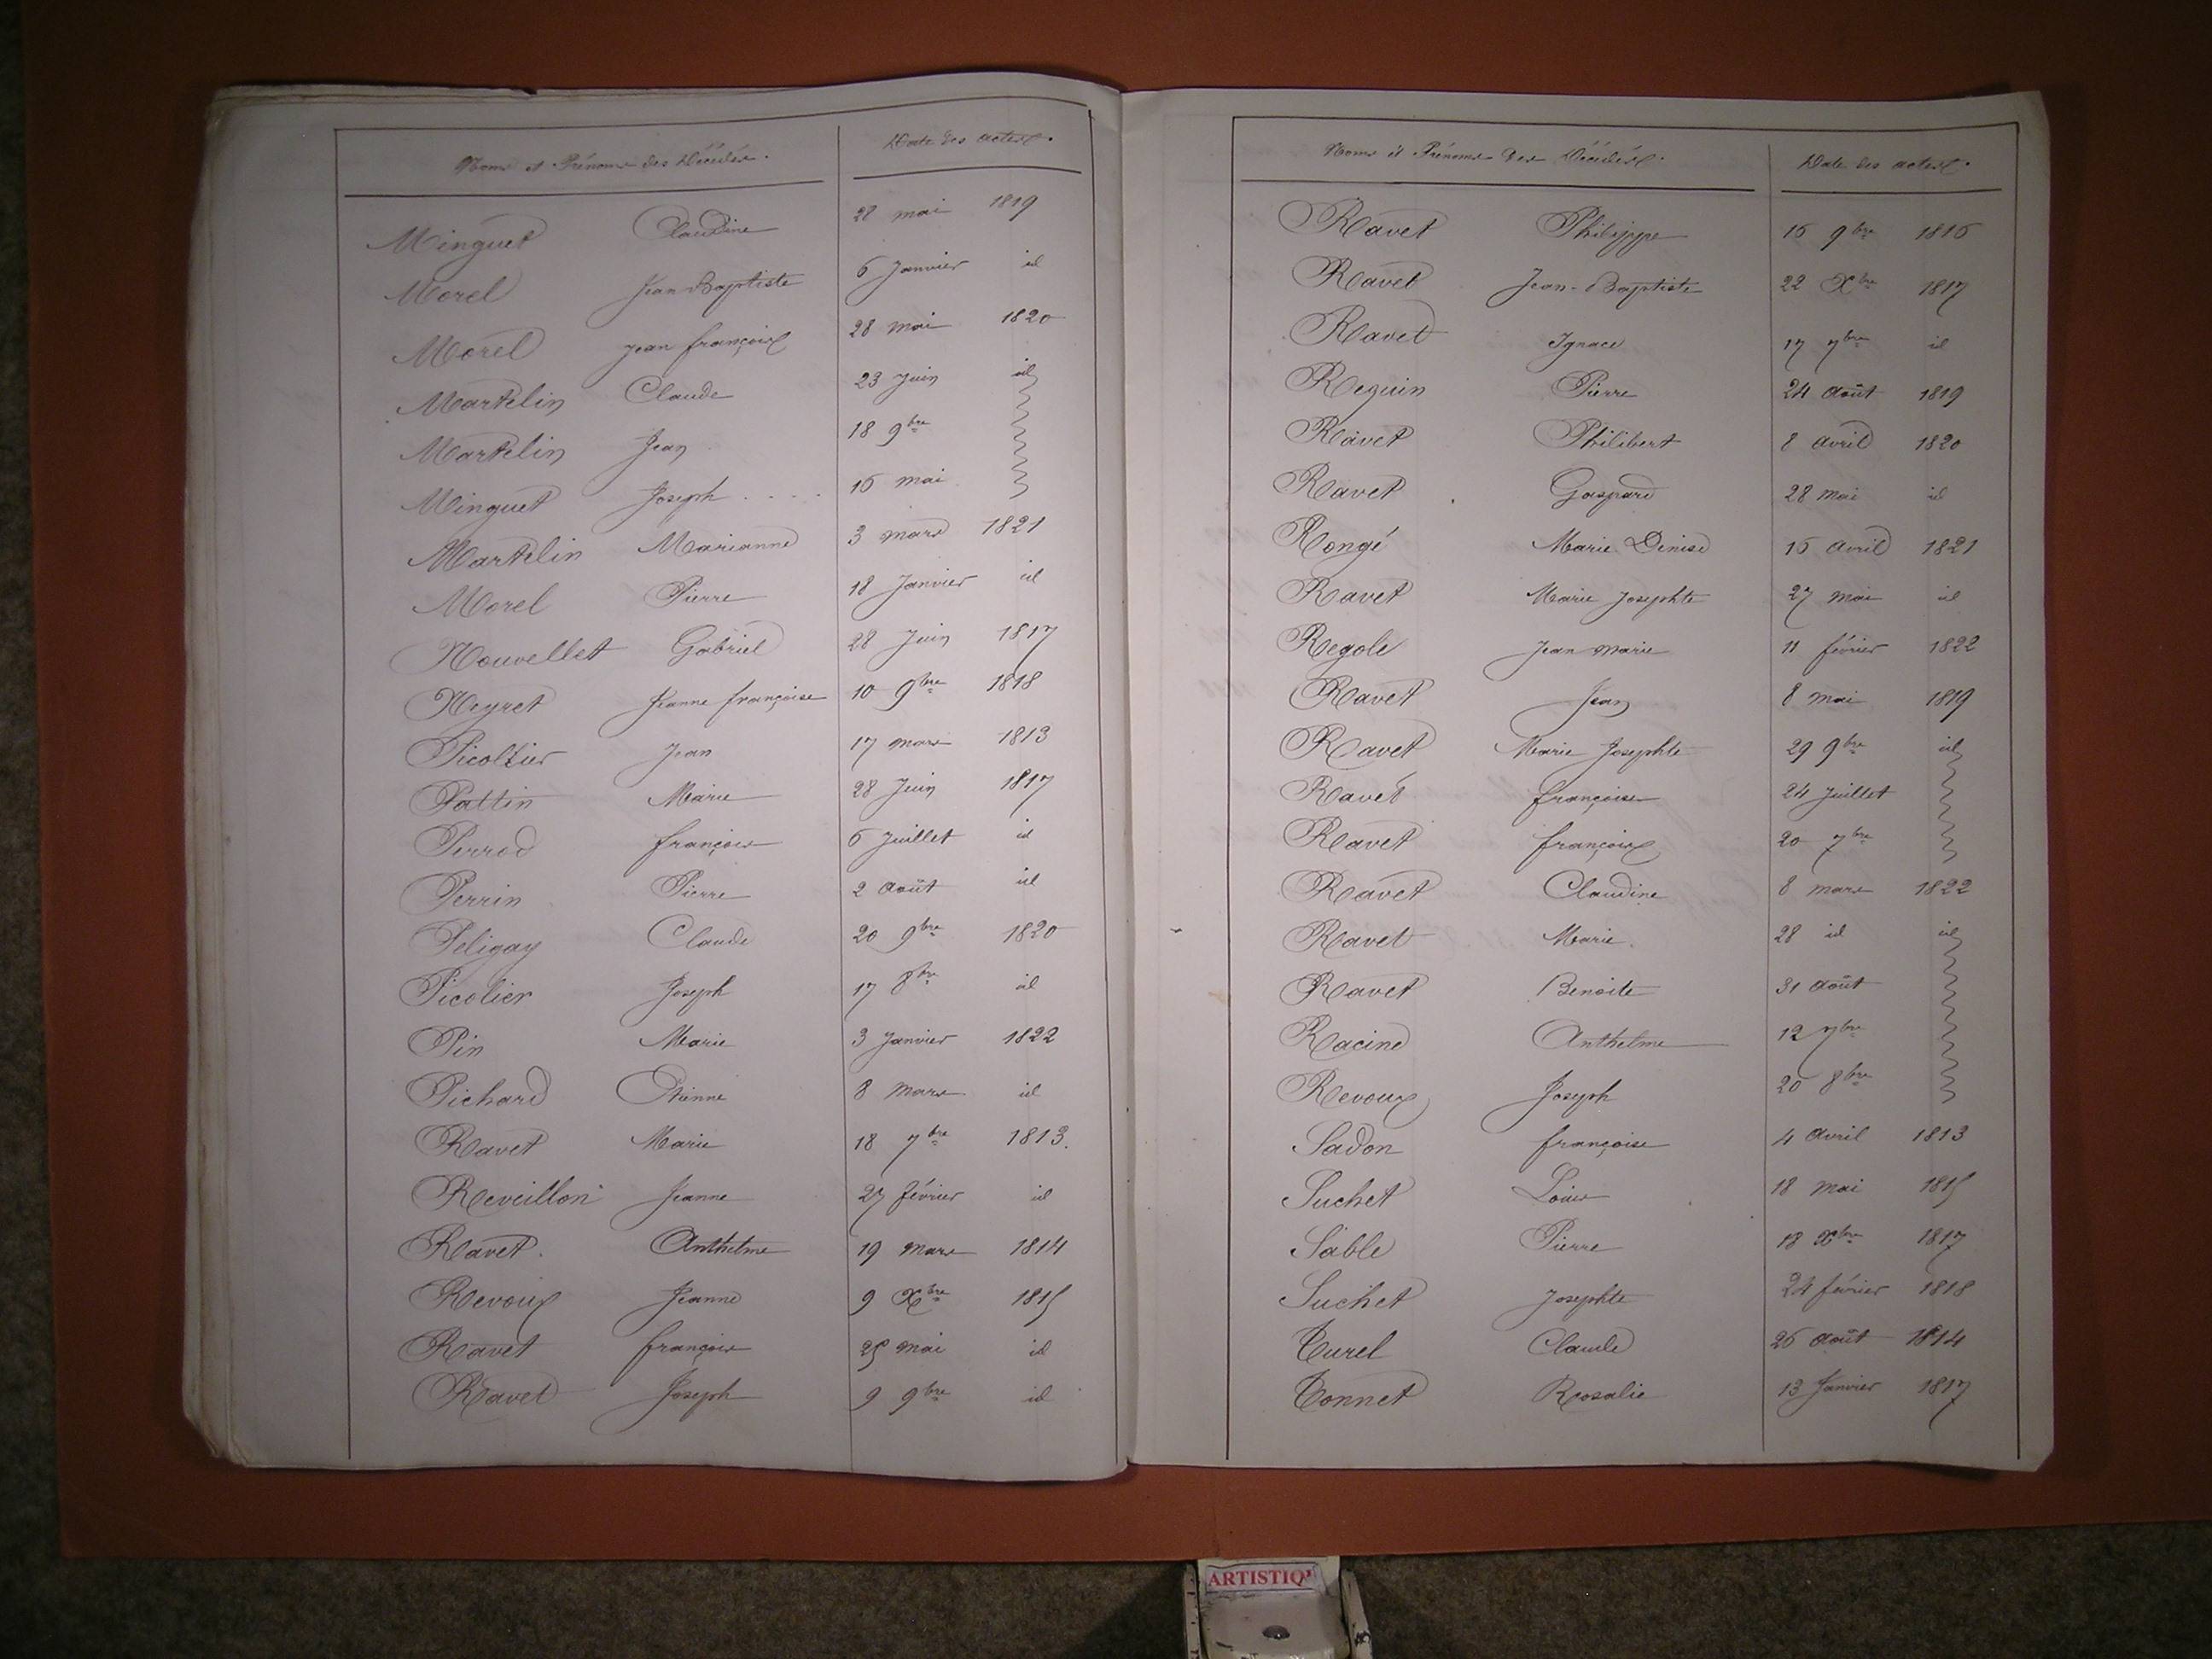 Noms et Prénoms des Décédés. Date des actes.
Minguet Claudine 28 mai 1819
Morel Jean Baptiste 6 Janvier id
Morel Jean françois 28 mai 1820
Martelin Claude 23 Juin id
Martelin Jean 18 9bre
Minguet Joseph . . . . 16 mai
Martelin Marianne 3 mars 1821
Morel Pierre 18 Janvier id
Nouvellet Gabriel 28 Juin 1817
Neyret Jeanne françoise 10 9bre 1818
Picollier Jean 17 mars 1813
Pattin Marie 28 Juin 1817
Perrod françois 6 Juillet id
Perrin Pierre 2 Août id
Peligay Claude 20 9bre 1820
Picolier Joseph 17 8bre id
Pin Marie 3 Janvier 1822
Pichard Etienne 8 Mars id
Ravet Marie 18 7bre 1813.
Reveillon Jeanne 27 février id
Ravet. Anthelme 19 mars 1814
Revoux Jeanne 9 Xbre 1815
Ravet françois 25 mai id
Ravet Joseph 9 9bre id
Noms et Prénoms des Décédés. Date des actes.
Ravet Philippe 16 9bre 1816
Ravet Jean-Baptiste 22 Xbre 1817
Ravet Ignace 17 7bre id
Reguin Pierre 24 Août 1819
Ravet Philibert 8 avril 1820
Ravet Gaspard 28 mai id
Rongé Marie Denise 16 avril 1821
Ravet Marie Josephte 27 mai id
Regole Jean Marie 11 février 1822
Ravet Jean 8 mai 1819
Ravet Marie Josephte 29 9bre id
Ravet françoise 24 Juillet
Ravet françois 20 7bre
Ravet Claudine 8 mars 1822
Ravet Marie. 28 id id
Ravet Benoite 31 Août
Racine Anthelme 12 7bre
Revoux Joseph 20 8bre
Sadon françoise 4 avril 1813
Suchet Louis 18 Mai 1815
Sable Pierre 18 Xbre 1817
Suchet Josephte 24 février 1818
Turel Claude 26 Août 1814
Tonnet Rosalie 13 Janvier 1817
ARTISTIQ'